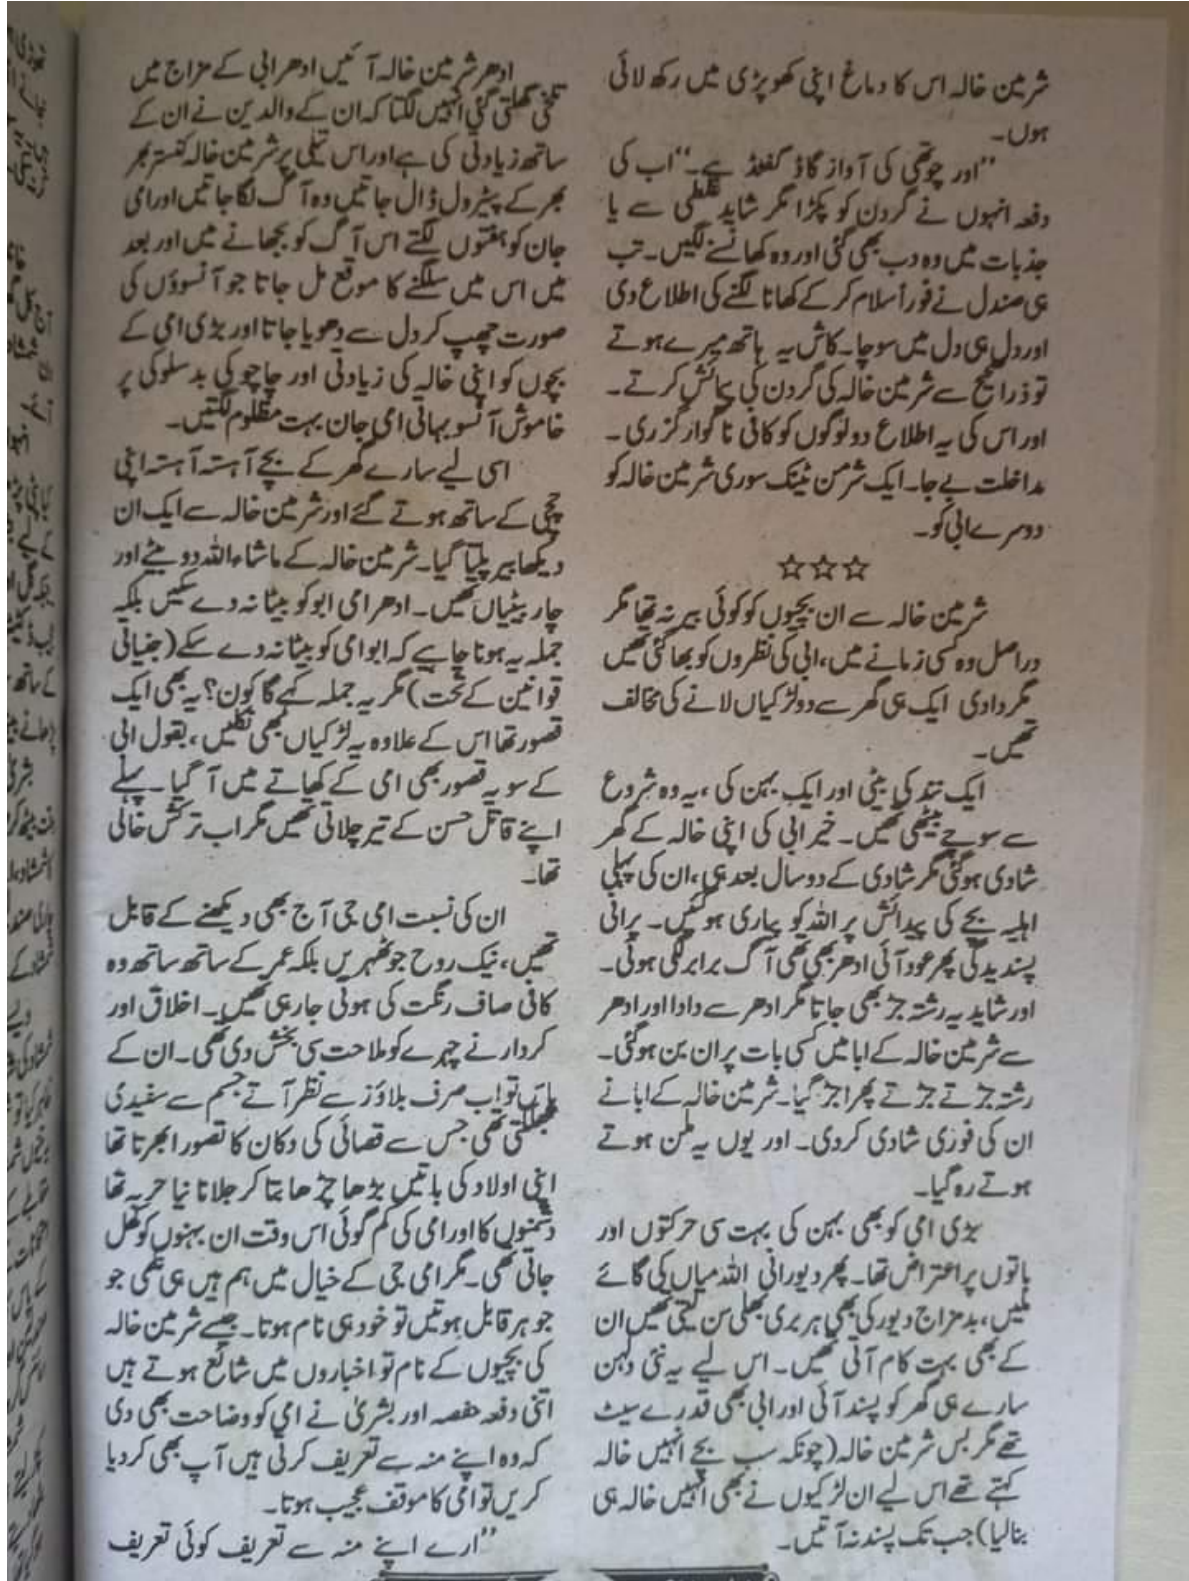 شرمین خالہ اس کا دماغ اپنی کھوپڑی میں رکھ لائی
ہوں۔
"اور چوتھی کی آواز گاڈ گفٹڈ ہے۔" اب کی
دفعہ انہوں نے گردن کو پکڑا مگر شاید غلطی سے یا
جذبات میں وہ دب بھی گئی اور وہ کھانسنے لگیں۔ تب
ہی صندل نے فوراً سلام کر کے کھانا لگنے کی اطلاع دی
اور دل ہی دل میں سوچا۔ کاش یہ ہاتھ میرے ہوتے
تو ذرا صحیح سے شرمین خالہ کی گردن کی پیمائش کرتے۔
اور اس کی یہ اطلاع دو لوگوں کو کافی ناگوار گزری۔
مداخلت بے جا۔ ایک شرمن ٹینک سوری شرمین خالہ کو
دوسرے ابی کو۔
☆☆☆
شرمین خالہ سے ان بچیوں کو کوئی بیر نہ تھا مگر
دراصل وہ کسی زمانے میں، ابی کی نظروں کو بھا گئی تھیں
مگر دادی ایک ہی گھر سے دو لڑکیاں لانے کی مخالف
تھیں۔
ایک نند کی بیٹی اور ایک بہن کی، یہ وہ شروع
سے سوچے بیٹھی تھیں۔ خیر ابی کی اپنی خالہ کے گھر
شادی ہو گئی مگر شادی کے دو سال بعد ہی، ان کی پہلی
اہلیہ بچے کی پیدائش پر اللہ کو پیاری ہو گئیں۔ پرانی
پسندیدگی پھر عود آئی ادھر بھی تھی آگ برابر لگی ہوئی۔
اور شاید یہ رشتہ جڑ بھی جاتا مگر ادھر سے دادا اور ادھر
سے شرمین خالہ کے ابا میں کسی بات پر ان بن ہو گئی۔
رشتہ جڑتے جڑتے پھر اجڑ گیا۔ شرمین خالہ کے ابا نے
ان کی فوری شادی کر دی۔ اور یوں یہ ملن ہوتے
ہوتے رہ گیا۔
بڑی امی کو بھی بہن کی بہت سی حرکتوں اور
باتوں پر اعتراض تھا۔ پھر دیورانی اللہ میاں کی گائے
ملیں، بدمزاج دیور کی بھی ہر بری بھلی سن لیتی تھیں ان
کے بھی بہت کام آتی تھیں۔ اس لیے یہ نئی دلہن
سارے ہی گھر کو پسند آئی اور ابی بھی قدرے سیٹ
تھے مگر بس شرمین خالہ (چونکہ سب بچے انہیں خالہ
کہتے تھے اس لیے ان لڑکیوں نے بھی انہیں خالہ ہی
بنا لیا) جب تک پسند نہ آتیں۔
ادھر شرمین خالہ آئیں ادھر ابی کے مزاج میں
تلخی گھلتی گئی انہیں لگتا کہ ان کے والدین نے ان کے
ساتھ زیادتی کی ہے اور اس تیلی پر شرمین خالہ کنستر بھر
بھر کے پیٹرول ڈال جاتیں وہ آگ لگا جاتیں اور امی
جان کو ہفتوں لگتے اس آگ کو بجھانے میں اور بعد
میں اس میں سلگنے کا موقع مل جاتا جو آنسوؤں کی
صورت چھپ کر دل سے دھویا جاتا اور بڑی امی کے
بچوں کو اپنی خالہ کی زیادتی اور چاچو کی بدسلوکی پر
خاموش آنسو بہاتی امی جان بہت مظلوم لگتیں۔
اسی لیے سارے گھر کے بچے آہستہ آہستہ اپنی
چچی کے ساتھ ہوتے گئے اور شرمین خالہ سے ایک ان
دیکھا بیر پلتا گیا۔ شرمین خالہ کے ماشاء اللہ دو بیٹے اور
چار بیٹیاں تھیں۔ ادھر امی ابو کو بیٹا نہ دے سکیں بلکہ
جملہ یہ ہونا چاہیے کہ ابو امی کو بیٹا نہ دے سکے (جنیاتی
قوانین کے تحت) مگر یہ جملہ کہے گا کون؟ یہ بھی ایک
قصور تھا اس کے علاوہ یہ لڑکیاں بھی نکلیں، بقول ابی
کے سو یہ قصور بھی امی کے کھاتے میں آ گیا۔ پہلے
اپنے قاتل حسن کے تیر چلاتی تھیں مگر اب ترکش خالی
تھا۔
ان کی نسبت امی جی آج بھی دیکھنے کے قابل
تھیں، نیک روح جو ٹھہریں بلکہ عمر کے ساتھ ساتھ وہ
کافی صاف رنگت کی ہوتی جا رہی تھیں۔ اخلاق اور
کردار نے چہرے کو ملاحت سی بخش دی تھی۔ ان کے
ہاں تو اب صرف بلاؤز سے نظر آتے جسم سے سفیدی
جھلکتی تھی جس سے قصائی کی دکان کا تصور ابھرتا تھا
اپنی اولاد کی باتیں بڑھا چڑھا بتا کر جلانا نیا حربہ تھا
دشمنوں کا اور امی کی کم گوئی اس وقت ان بہنوں کو کھل
جاتی تھی۔ مگر امی جی کے خیال میں ہم ہیں ہی نکمی جو
جوہر قابل ہوتیں تو خود ہی نام ہوتا۔ جیسے شرمین خالہ
کی بچیوں کے نام تو اخباروں میں شائع ہوتے ہیں
اتنی دفعہ حفصہ اور بشریٰ نے امی کو وضاحت بھی دی
کہ وہ اپنے منہ سے تعریف کرتی ہیں آپ بھی کر دیا
کریں تو امی کا موقف عجیب ہوتا۔
"ارے اپنے منہ سے تعریف کوئی تعریف